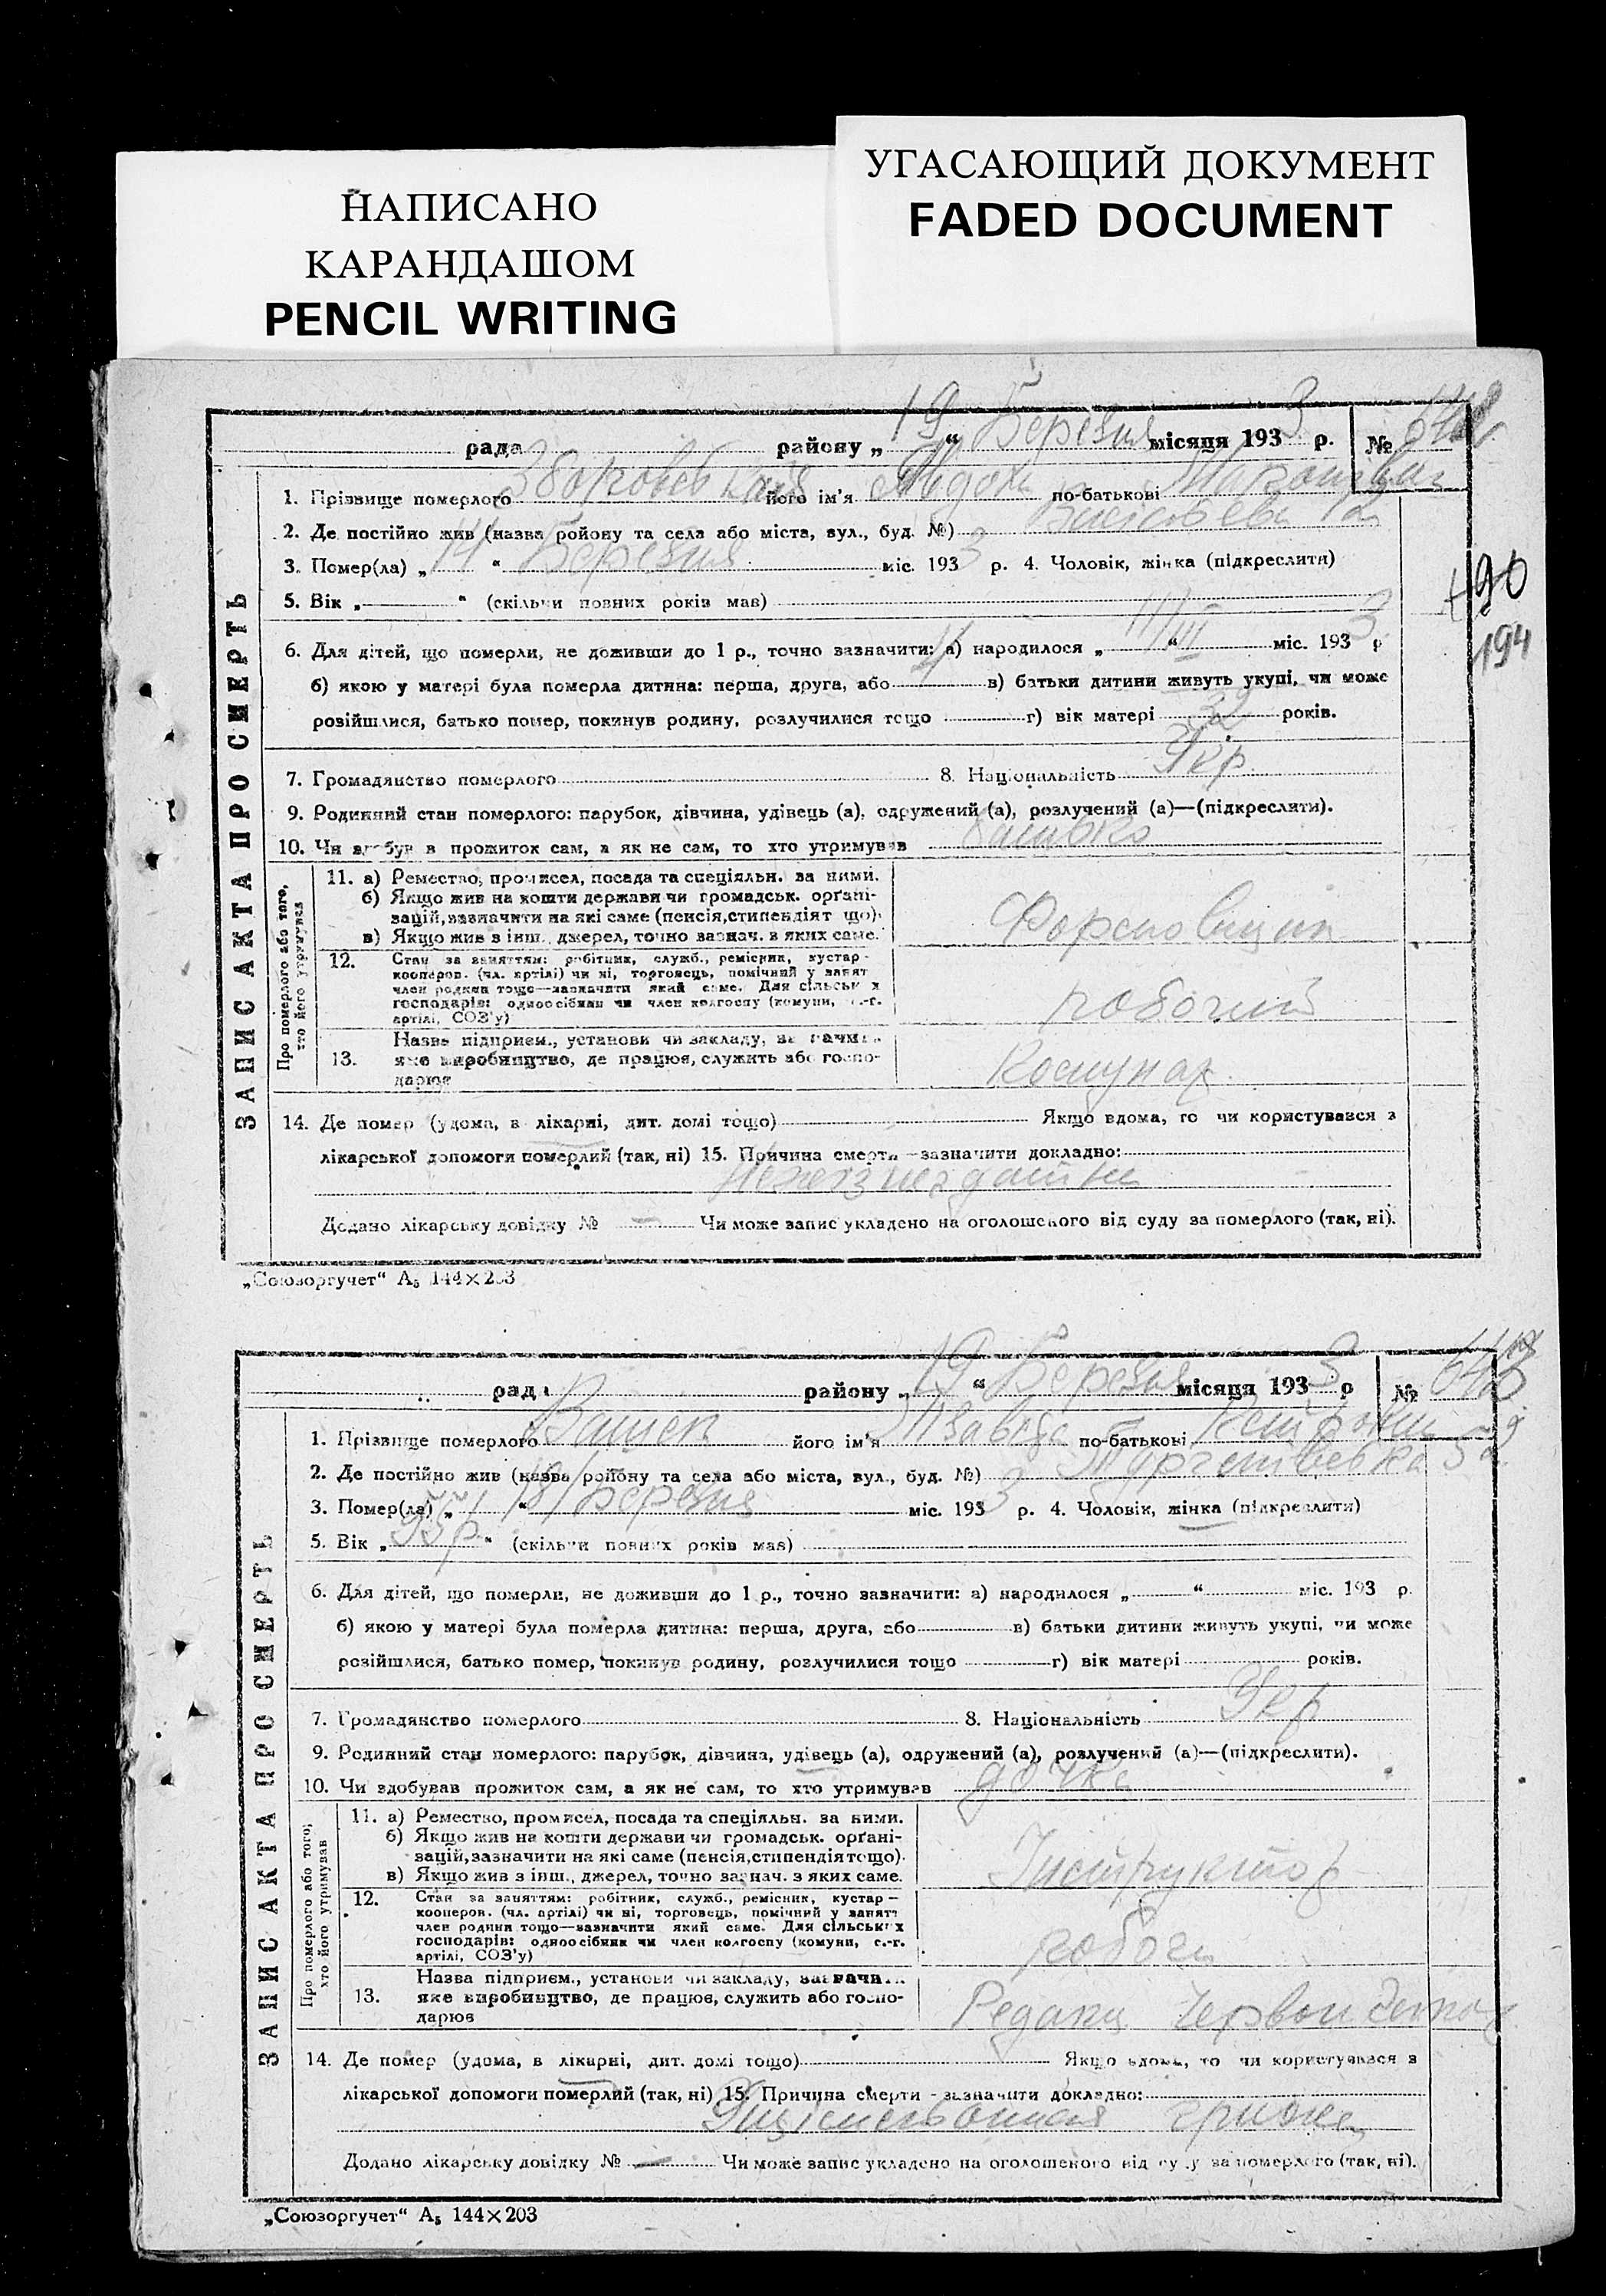 НАПИСАНО
КАРАНДАШОМ
PENCIL WRITING
УГАСАЮЩИЙ ДОКУМЕНТ
FADED DOCUMENT
рада району „ 19 “ Березня місяця 1933 р. №
ЗАПИС АКТА ПРО СМЕРТЬ
1. Прізвище померлого його ім'я по-батькові
2. Де постійно жив (назва ройону та села або міста, вул., буд. №)
3. Помер(ла) „ 14 “ Березня міс. 1933 р. 4. Чоловік, жінка (підкреслити)
5. Вік „ “ (скільки повних років мав)
490
194
6. Для дітей, що померли, не доживши до 1 р., точно зазначити: а) народилося „ 11/III “ міс. 1933 р
б) якою у матері була померла дитина: перша, друга, або в) батьки дитини живуть укупі, чи може
розійшлися, батько помер, покинув родину, розлучилися тощо г) вік матері 32 років.
7. Громадянство померлого 8. Національність Укр
9. Родинний стан померлого: парубок, дівчина, удівець (а), одружений (а), розлучений (а)—(підкреслити).
10. Чи здобував прожиток сам, а як не сам, то хто утримував батько
Про померлого або того, хто його утримував
11. а) Ремество, промисел, посада та спеціяльн. за ними.
б) Якщо жив на кошти держави чи громадськ. орґані-
зацій, зазначити на які саме (пенсія, стипендія т що).
в) Якщо жив в інш. джерел, точно зазнач. в яких саме.
Формовщик
12. Стан за заняттям: робітник, служб., ремісник, кустар-
кооперов. (чл. артілі) чи ні, торговець, помічний у занят
член родини тощо—зазначити який саме. Для сільськ х
господарів: одноосібник чи член колгоспу (комуни, с.-г.
артілі, СОЗ'у)
робочий
13. Назва підприєм., установи чи закладу, зазначи
яке виробництво, де працює, служить або госпо-
дарює
Комунар
14. Де помер (удома, в лікарні, дит. домі тощо) Якщо вдома, то чи користувався з
лікарської допомоги померлий (так, ні) 15. Причина смерти—зазначити докладно:
Нежизнездатн
Додано лікарську довідку № — Чи може запис укладено на оголошеного від суду за померлого (так, ні).
„Союзоргучет“ А₅ 144×203
рада району „ 19 “ Березня місяця 1933 р №
ЗАПИС АКТА ПРО СМЕРТЬ
1. Прізвище померлого його ім'я по-батькові
2. Де постійно жив (назва ройону та села або міста, вул., буд. №)
3. Помер(ла) „ 18/ “ Березня міс. 1933 р. 4. Чоловік, жінка (підкреслити)
5. Вік „ “ (скільки повних років мав)
6. Для дітей, що померли, не доживши до 1 р., точно зазначити: а) народилося „ “ міс. 193 р.
б) якою у матері була померла дитина: перша, друга, або в) батьки дитини живуть укупі, чи може
розійшлися, батько помер, покинув родину, розлучилися тощо г) вік матері років.
7. Громадянство померлого 8. Національність Укр
9. Родинний стан померлого: парубок, дівчина, удівець (а), одружений (а), розлучений (а)—(підкреслити).
10. Чи здобував прожиток сам, а як не сам, то хто утримував дочка
Про померлого або того, хто його утримував
11. а) Ремество, промисел, посада та спеціяльн. за ними.
б) Якщо жив на кошти держави чи громадськ. орґані-
зацій, зазначити на які саме (пенсія, стипендія тощо).
в) Якщо жив з інш. джерел, точно зазнач. з яких саме.
Інструктор
12. Стан за заняттям: робітник, служб., ремісник, кустар—
кооперов. (чл. артілі) чи ні, торговець, помічний у занятт
член родини тощо—зазначити який саме. Для сільських
господарів: одноосібник чи член колгоспу (комуни, с.-г.
артілі, СОЗ'у)
13. Назва підприєм., установи чи закладу, зазначи
яке виробництво, де працює, служить або госпо-
дарює
Редакц Червон
14. Де помер (удома, в лікарні, дит. домі тощо) Якщо вдома, то чи користувався з
лікарської допомоги померлий (так, ні) 15. Причина смерти—зазначити докладно:
грижа
Додано лікарську довідку № — Чи може запис укладено на оголошеного від суду за померлого (так, ні).
„Союзоргучет“ А₅ 144×203